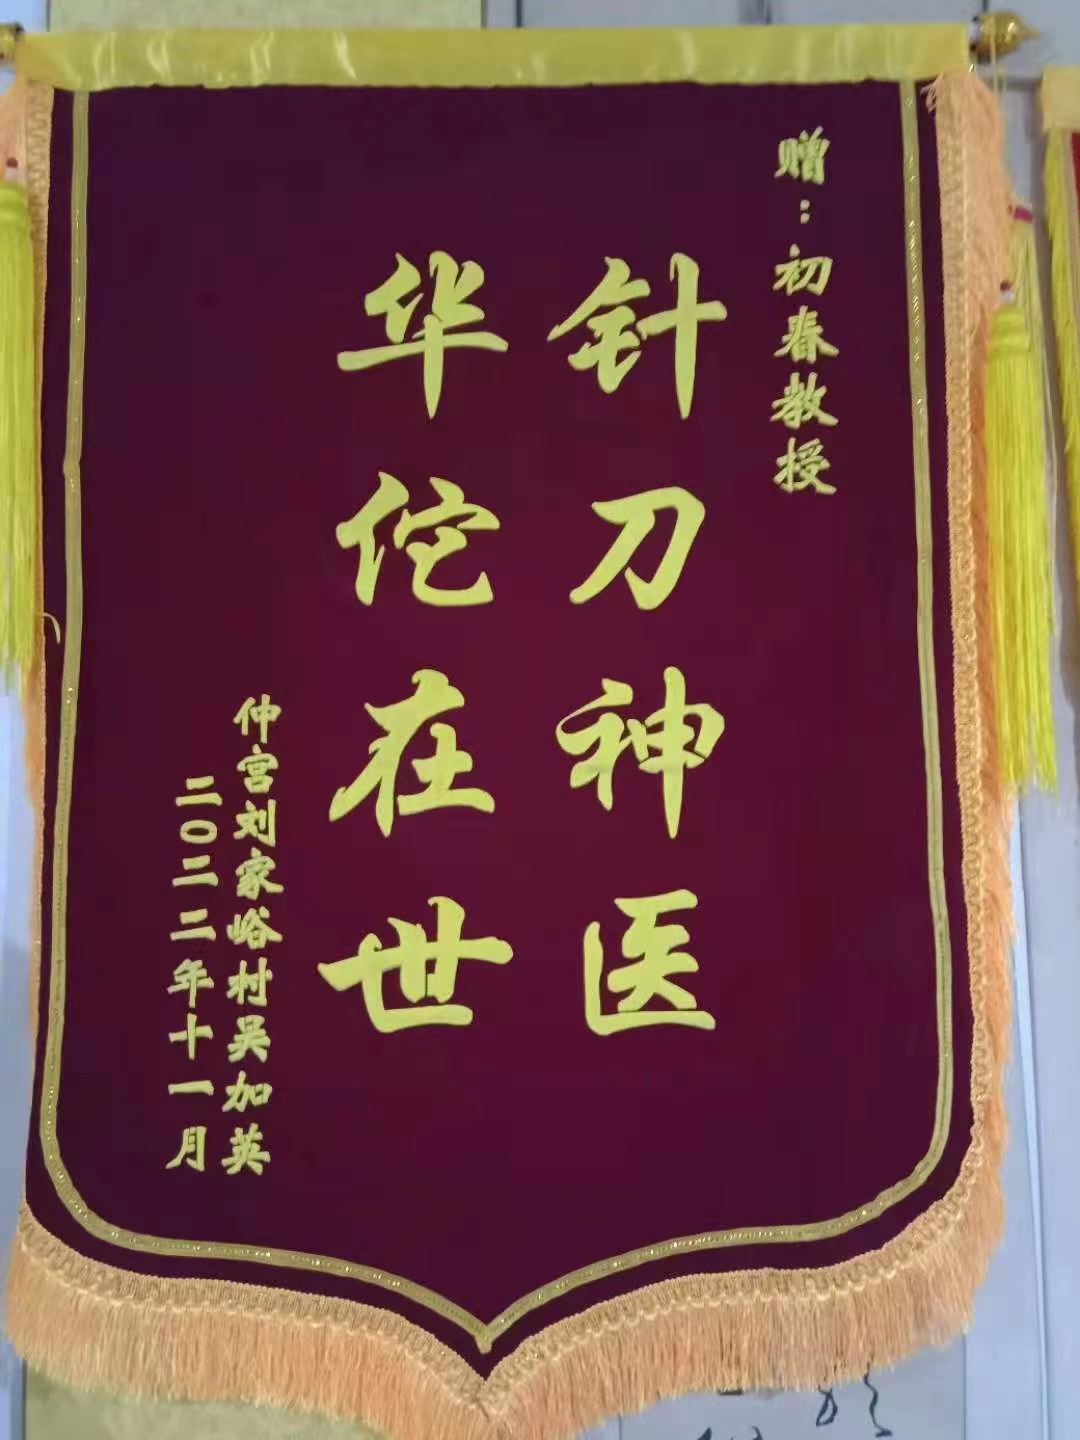 赠：初春教授
针刀神医
华佗在世
仲宫刘家峪村吴加英
二〇二二年十一月